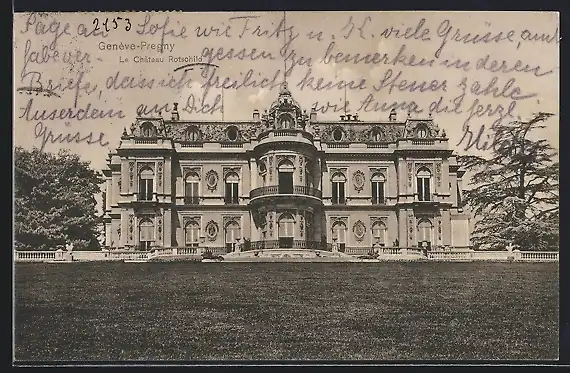 Sage auch Sofie wie Fritz u. K. viele Grüsse, am
2153
Genève-Pregny
Le Château Rotschild
gessen zu bemerken in deren
Brief, dass ich freilich keine Steuer zahle
Ausserdem an Dich wie Anna die herzl
Grüsse